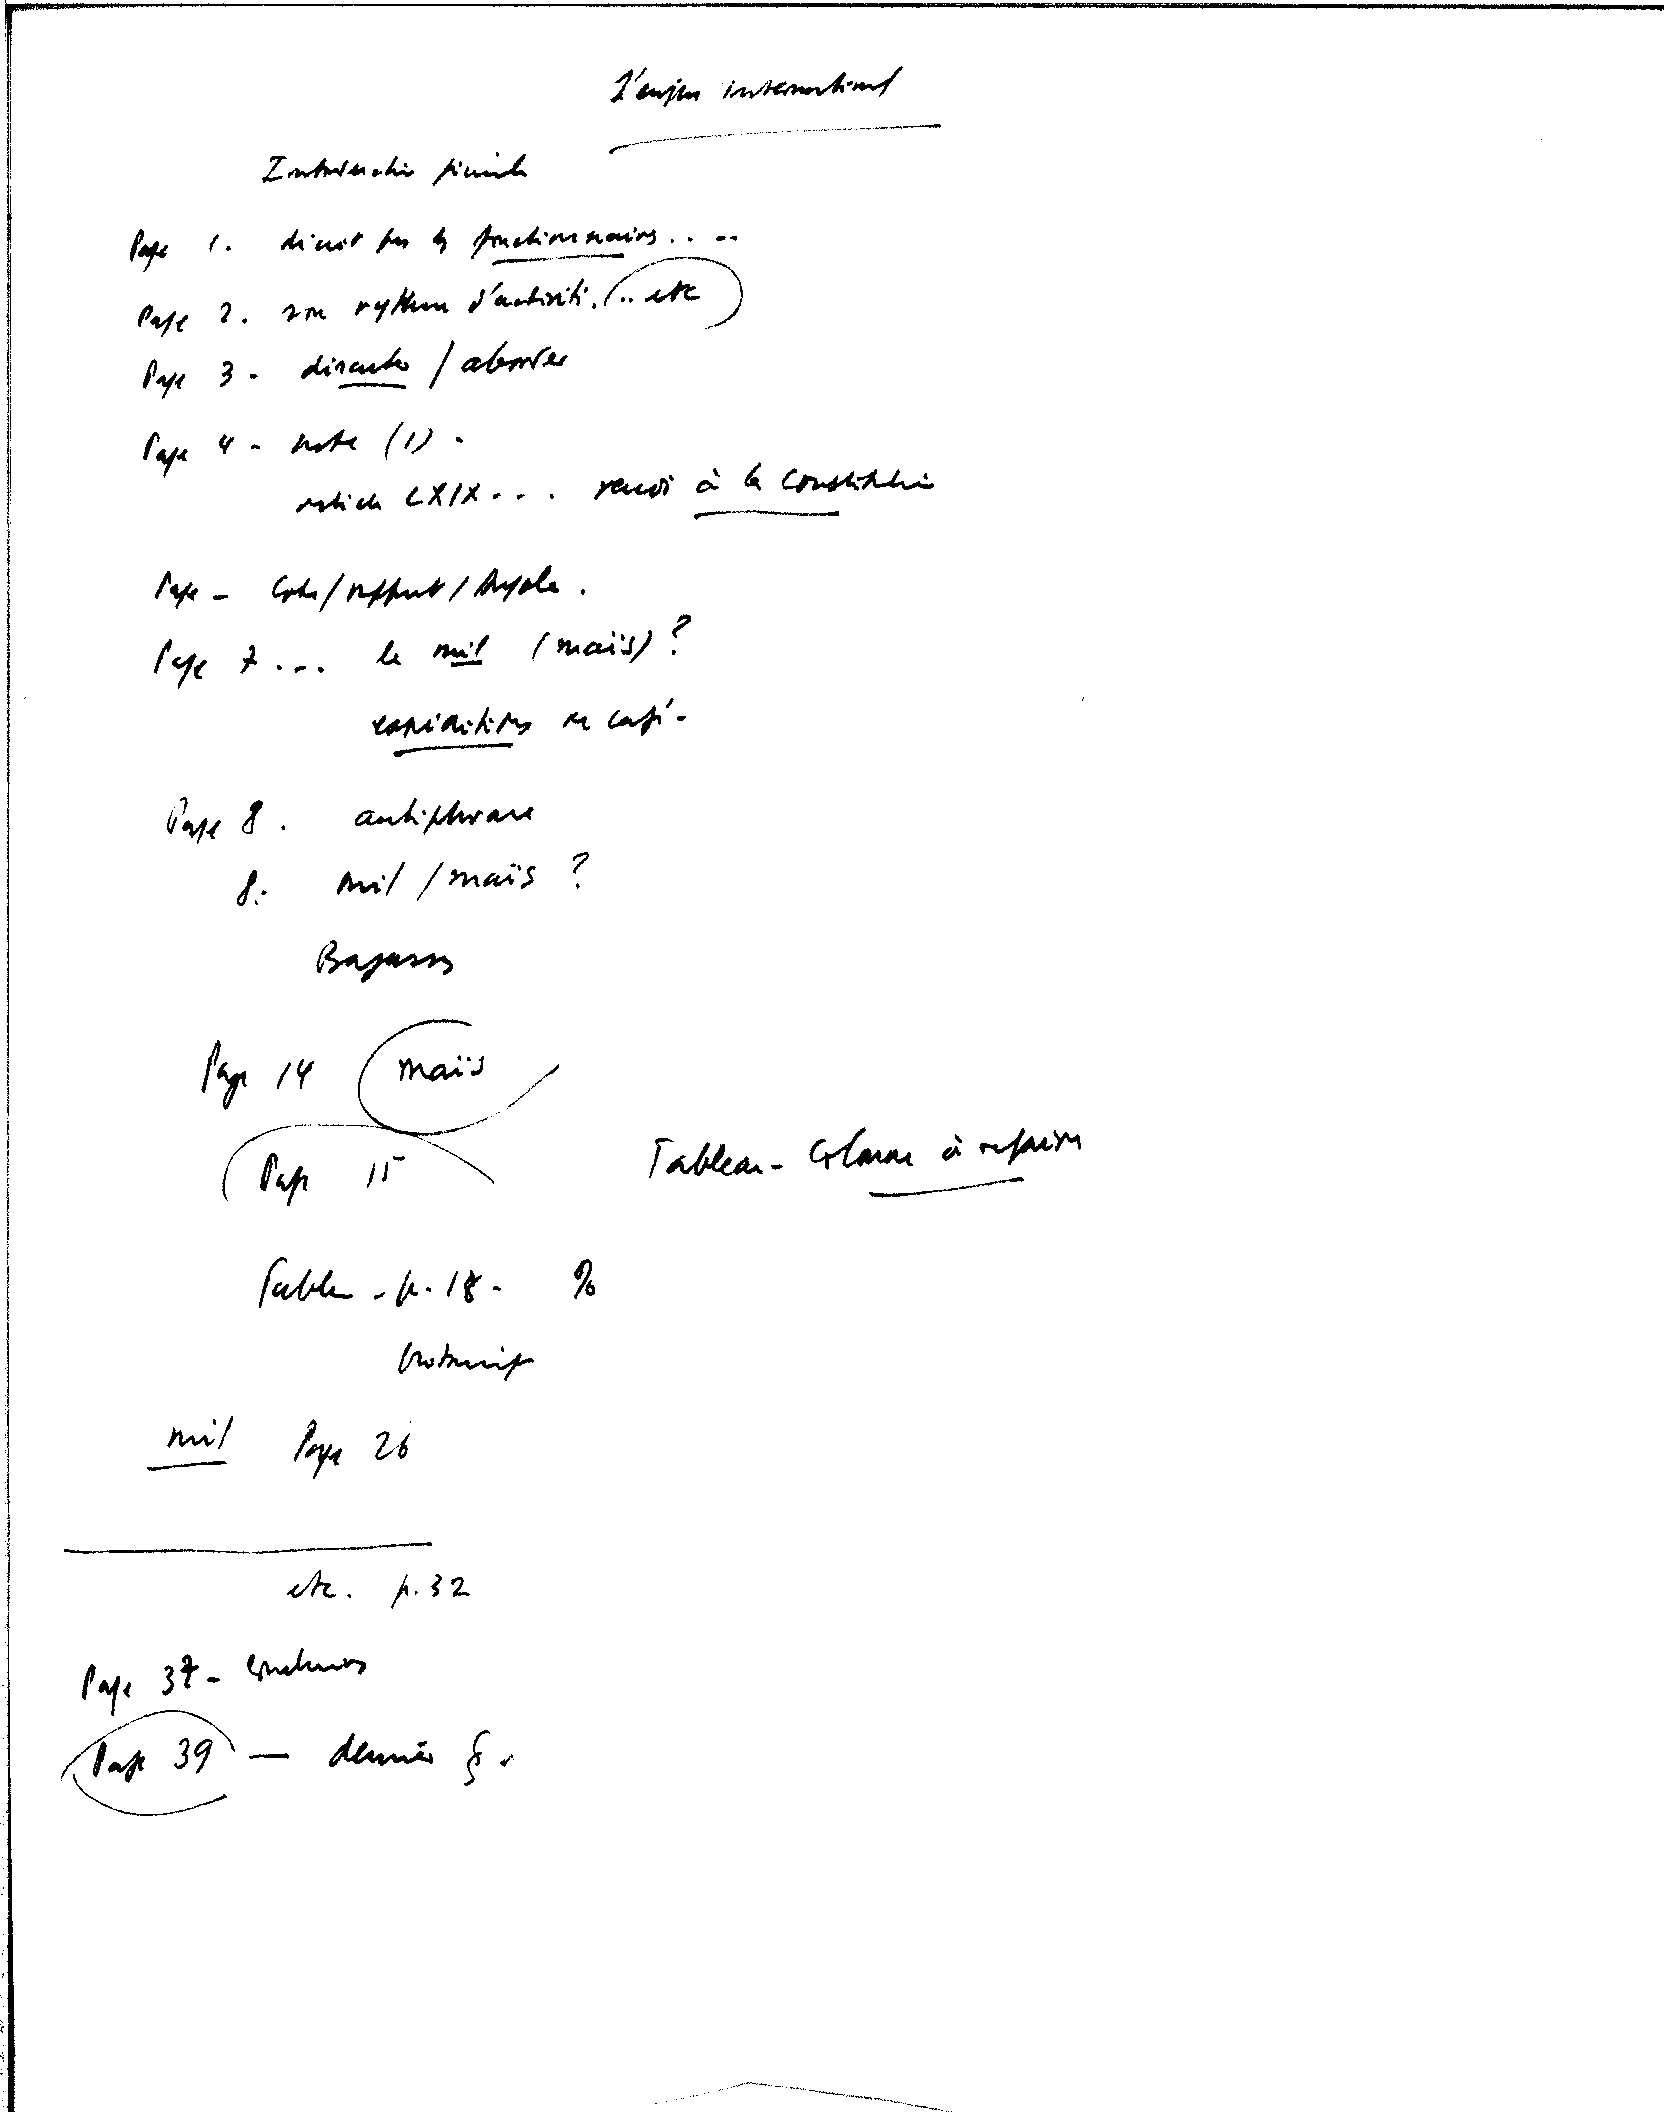 L'enjeu international
Introduction
Page 1. décrit par les fonctionnaires.. ..
Page 2. son rythme d'activité. (.. etc
Page 3 - discuter / aborder
Page 4 - note (1) -
article LXIX... renvoi à la Constitution
Page -
Page 7... le mil (maïs) ?
expéditions de café -
Page 8. antiphrase
8: mil / maïs ?
Bagasses
Page 14 maïs
Page 15 Tableau - Colonne à refaire
Tableau - p. 18 - %
mil Page 26
etc. p. 32
Page 37 -
Page 39 — dernier § .